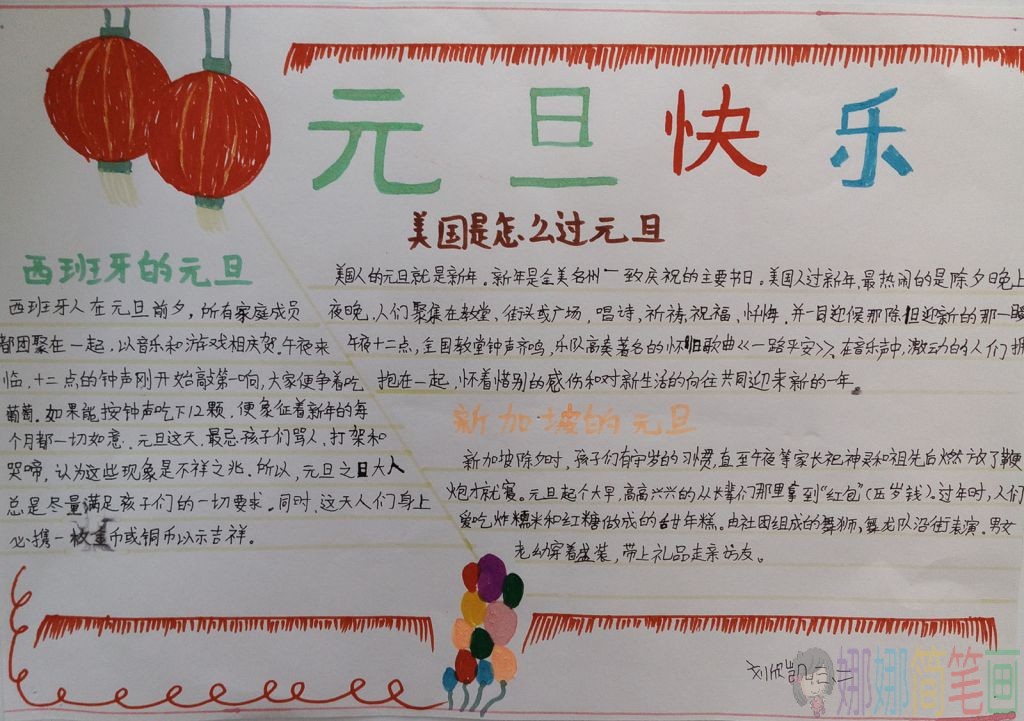 元旦快乐
美国是怎么过元旦
美国人的元旦就是新年。新年是全美各州一致庆祝的主要节日。美国人过新年,最热闹的是除夕日晚上
夜晚,人们聚集在教堂、街头或广场,唱诗,祈祷,祝福、忏悔,并一同迎候那除旧迎新的那一瞬
午夜十二点,全国教堂钟声齐鸣,乐队高奏著名的怀旧歌曲《一路平安》。在音乐声中,激动的人们拥
抱在一起,怀着惜别的感伤和对新生活的向往共同迎来新的一年。
西班牙的元旦
西班牙人在元旦前夕,所有家庭成员
都团聚在一起,以音乐和游戏相庆贺。午夜来
临,十二点的钟声刚开始敲第一响,大家便争着吃
葡萄。如果能按钟声吃下12颗,便象征着新年的每
个月都一切如意。元旦这天,最忌孩子们骂人、打架和
哭啼,认为这些现象是不祥之兆。所以,元旦之日大人
总是尽量满足孩子们的一切要求。同时,这天人们身上
必携一枚金币或铜币以示吉祥。
新加坡的元旦
新加坡除夕时,孩子们有守岁的习惯,直至午夜等家长祀神灵和祖先后燃放了鞭
炮才就寝。元旦起个大早,高高兴兴的从长辈们那里拿到"红包"(压岁钱)。过年时,人们
爱吃炸糯米和红糖做成的甜年糕。由社团组成的舞狮,舞龙队沿街表演。男女
老幼穿着盛装,带上礼品走亲访友。
刘欣凯三、二
娜娜简笔画